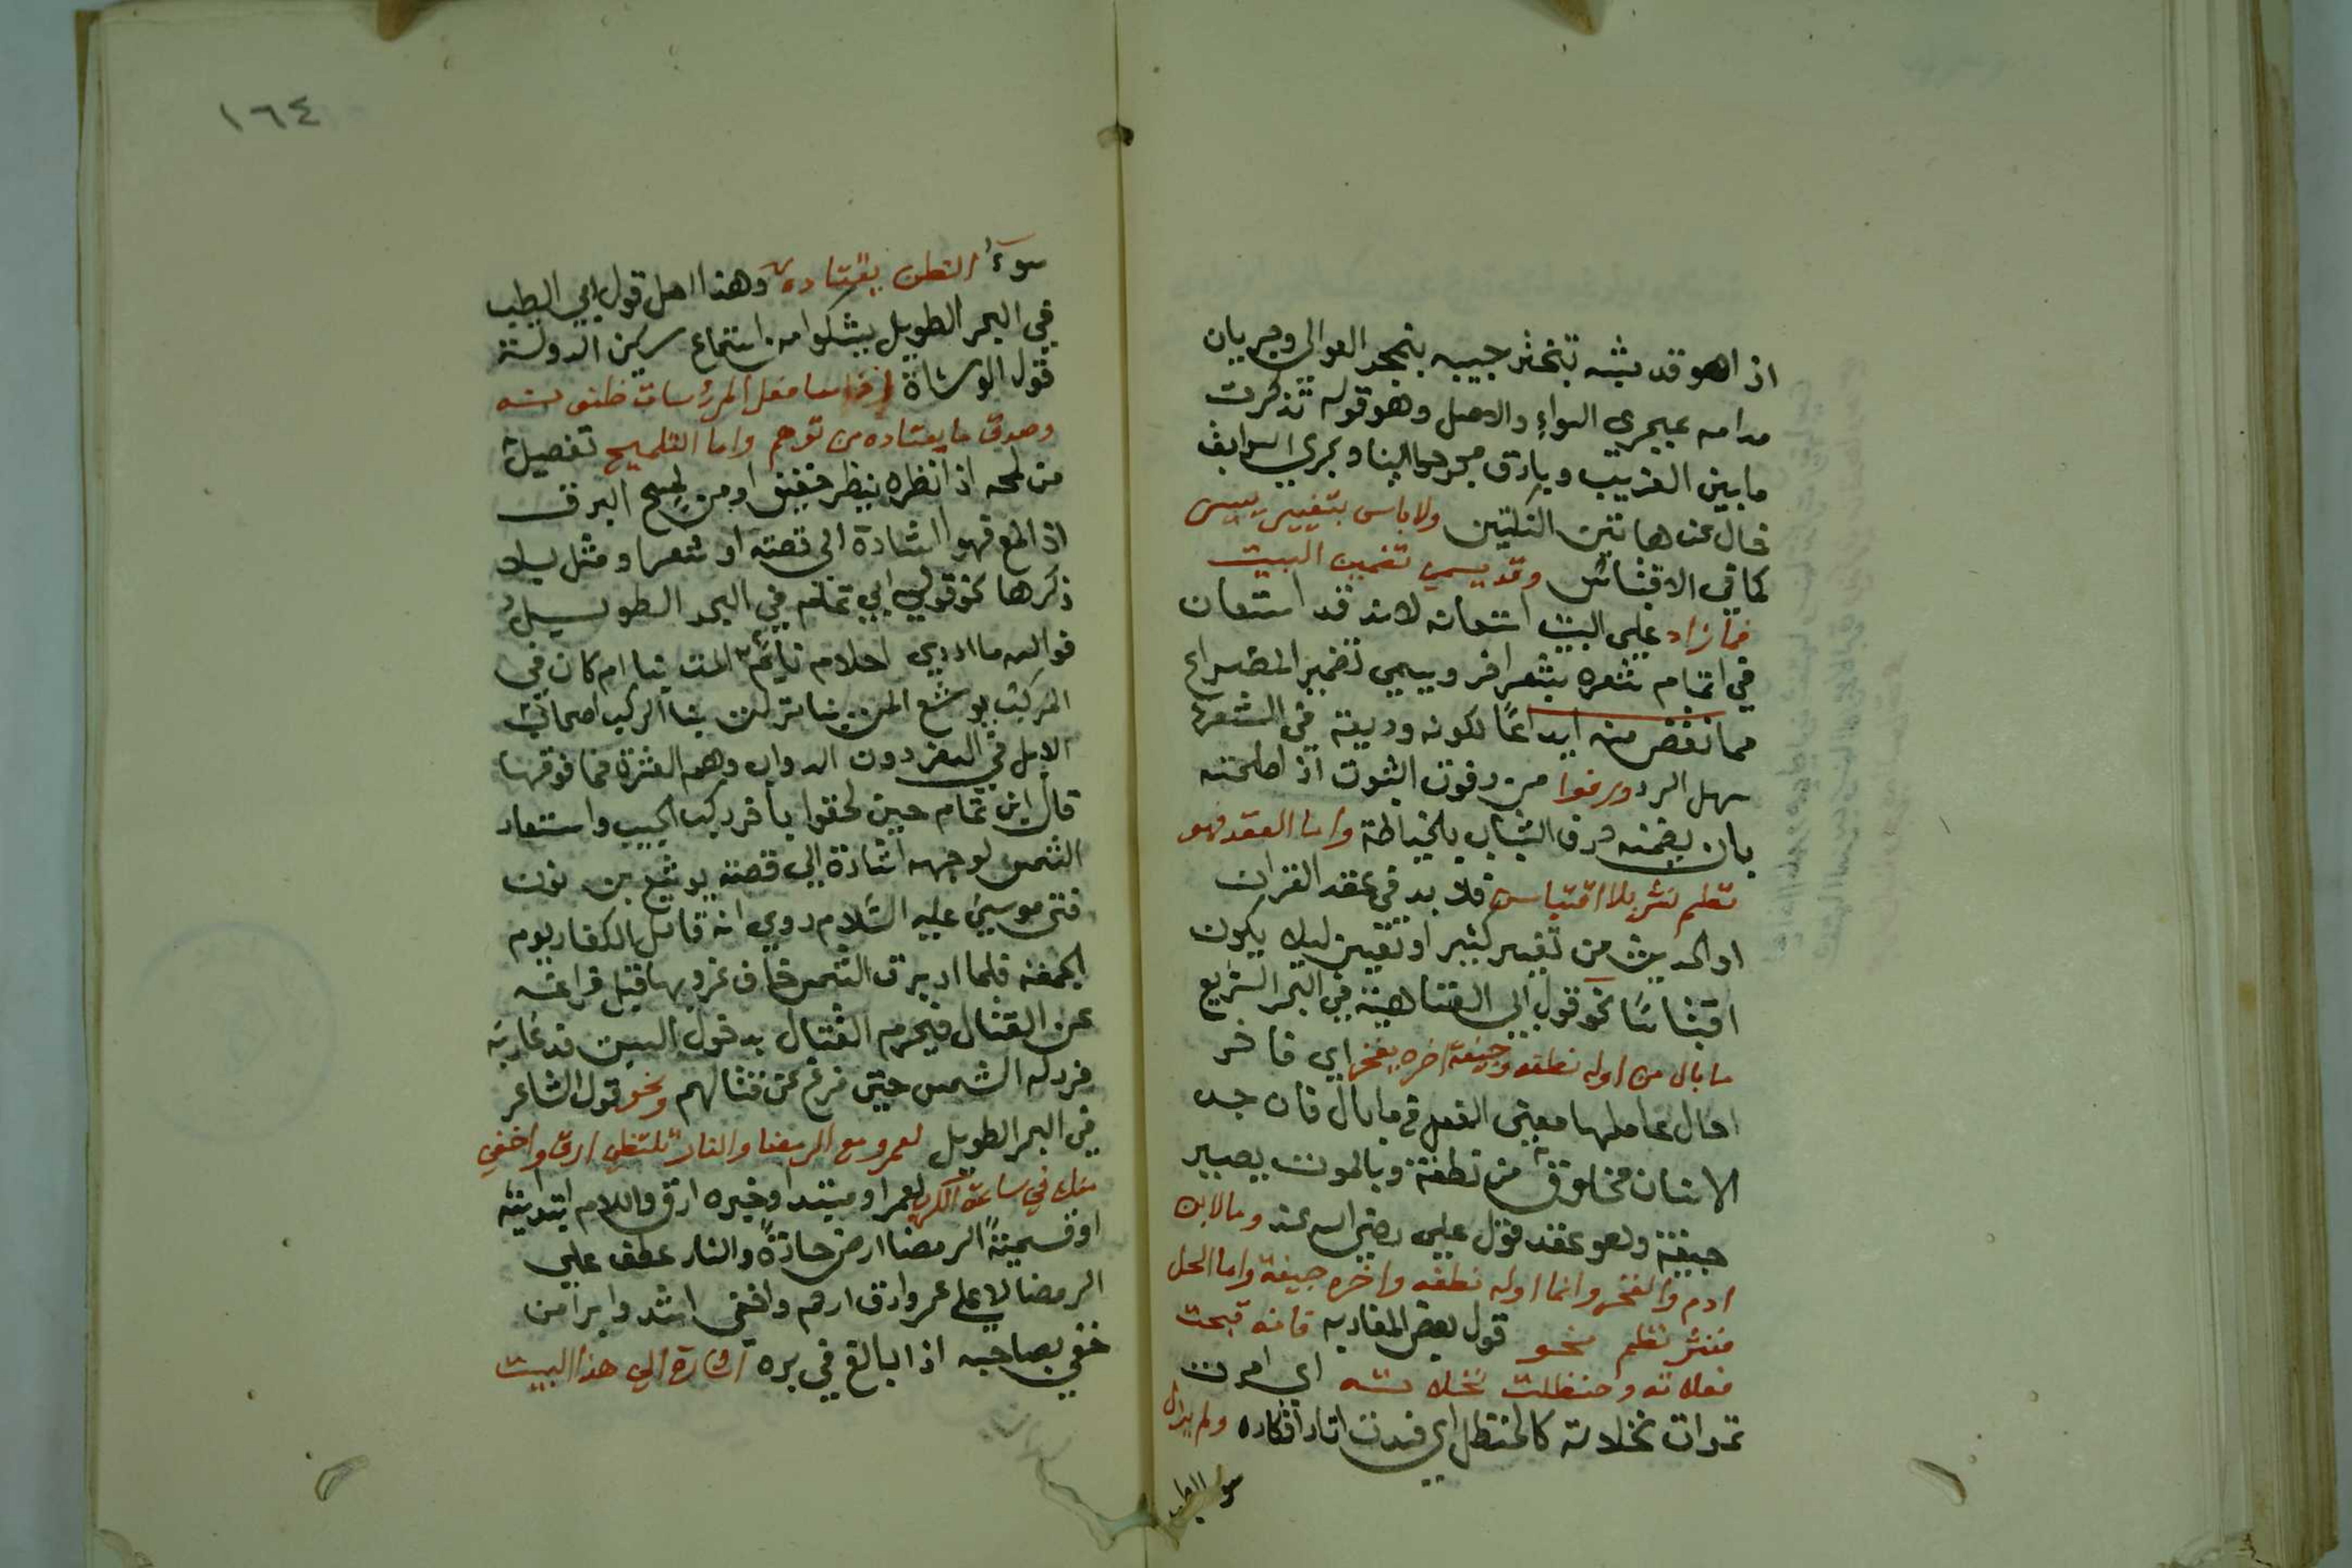 اذ اهو قد شبه تبختر حبيبه بتبختر العوالي وجريان
مدامه بمجري السواء والاصل وهو قوله تذكرت
ما بين العذيب وبارق مجر عوالينا ومجري السوابق
فحال عن هاتين النكتتين ولا باس بتغيير يسير
كما في الاقتباس وقد يسمي تضمين البيت
فما زاد علي البيت استعانه لانه قد استعان
في اتمام شعره بشعر اخر ويسمي تضمين المصراع
فما نقص منه ايداعًا لكونه وديعة في الشعر
سهل الرد ورفوا من رفوت الثوب اذ اصلحته
بان يضمنه خرق الثياب بالخياطة واما العقد فهو
نظم نثر بلا اقتباس فلا بد في عقد القران
او الحديث من تغيير كثير او تغيير ليلا يكون
اقتباسًا نحو قول ابي العتاهية في البحر السريع
ما بال من اوله نطفه وجيفة اخره يفخر اي فاخر
احال عاملها معنى الفعل في ما بال فان جسد
الانسان مخلوق من نطفة وبالموت يصير
جيفة وهو عقد قول علي رضي الله عنه وما لابن
ادم والفخر وانما اوله نطفه واخره جيفة واما الحل
فنثر نظم نحو قول بعض المغاربه فانه قبحت
فعلاته وحنظلت نخلاته اي امرت
ثمرات نخلاته كالحنظل اي فسدت اثار افكاره ولم يزل
سوء الظن
١٦٤
سوء الظن يقتاده وهذا احل قول ابي الطيب
في البحر الطويل يشكوا من استماع سيف الدولة
قول الوشاة اذا ساء فعل المرء ساءت ظنونه
وصدق ما يعتاده من توهم واما التلميح تفصيل
من لمحه اذ انظره بنظر خفيف او من لمح البرق
اذ المع فهو اشارة الى قصة او شعر او مثل بلا
ذكرها نحو قول ابي تمام في البحر الطويل
فوالله ما ادري احلام نايم المت بنا ام كان في
الركب يوشع المن بنا نزلت بنا الركب اصحاب
الابل في السفر دون الدواب وهم العشرة فما فوقها
قال ابن تمام حين لحقوا باخر ركب الحبيب واستعار
الشمس لوجهه اشارة الي قصة يوشع بن نون
فتى موسى عليه السلام روي انه قاتل الكفار يوم
الجمعه فلما ادبرت الشمس خاف غروبها قبل فراغه
عن القتال فيحرم القتال بدخول السبت فدعا ربه
فرد له الشمس حتى فرغ عن قتالهم ونحو قول الشاعر
في البحر الطويل لعمرو مع الرمضا والنار تلتظي ارق واخفي
منك في ساعة الكرب لعمرا ومبتدا وخبره ارق واللام ابتدائية
او قسمية الرمضا ارض حارة والنار عطف علي
الرمضا لا علي عمرو ارق ارحم واخفي اشد وابرا من
خفي بصاحبه اذا بالغ في بره اشارة الي هذا البيت